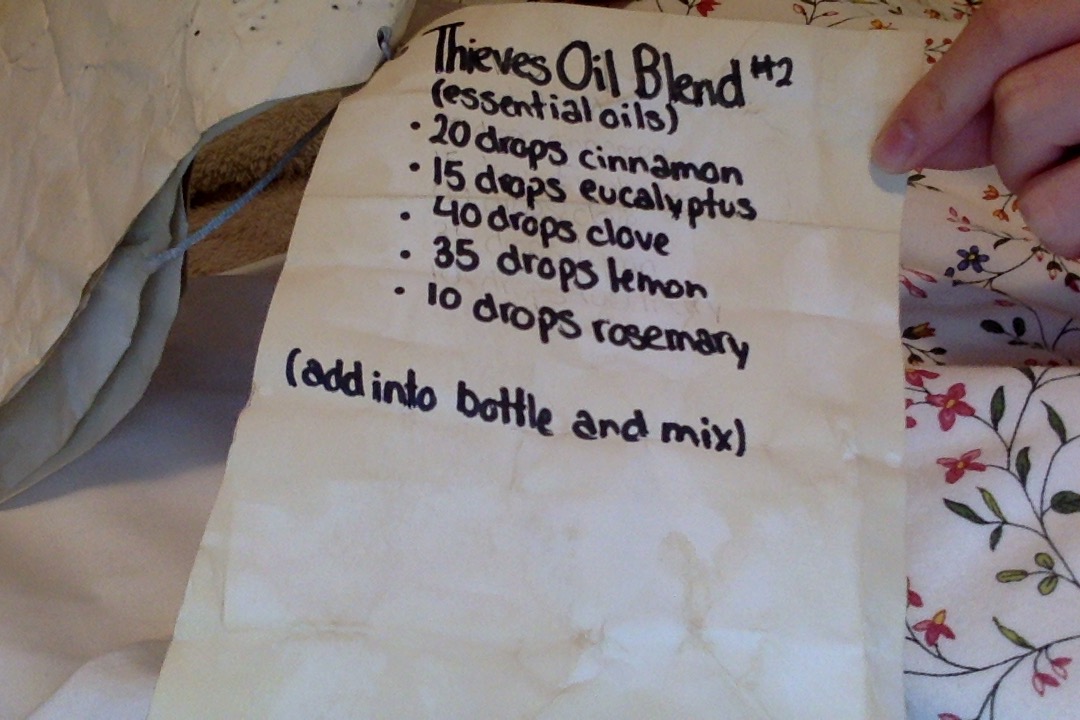 Thieves Oil Blend #2
(essential oils)
• 20 drops cinnamon
• 15 drops eucalyptus
• 40 drops clove
• 35 drops lemon
• 10 drops rosemary
(add into bottle and mix)